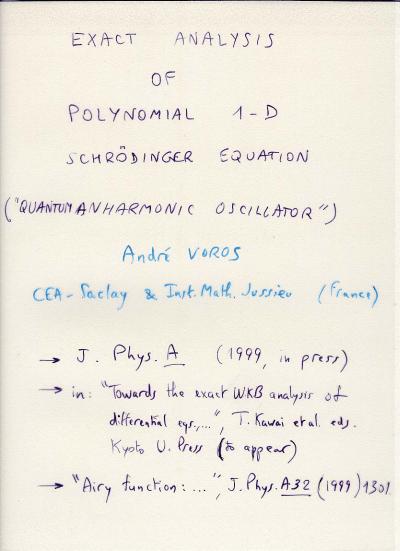 EXACT ANALYSIS
OF
POLYNOMIAL 1-D
SCHRÖDINGER EQUATION
("QUANTUM ANHARMONIC OSCILLATOR")
André VOROS
CEA-Saclay & Inst. Math. Jussieu (France)
→ J. Phys. A (1999, in press)
→ in: "Towards the exact WKB analysis of
differential eqs.,...", T. Kawai et al. eds.
Kyoto U. Press (to appear)
→ "Airy function: ...", J. Phys. A32 (1999) 1301